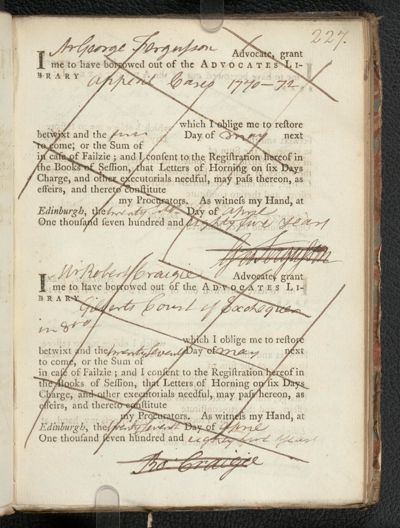 227.
I Mr George Fergusson Advocate, grant
me to have borrowed out of the ADVOCATES LI-
BRARY Appeal Cases 1770-72
which I oblige me to reſtore
betwixt and the first Day of May next
to come; or the Sum of
in caſe of Failzie; and I conſent to the Regiſtration hereof in
the Books of Seſſion, that Letters of Horning on ſix Days
Charge, and other executorials needful, may paſs thereon, as
effeirs, and thereto conſtitute
my Procurators. As witneſs my Hand, at
Edinburgh, the twenty Day of April
One thouſand ſeven hundred and eighty five Years
Geo Fergusson
I Mr Robert Craigie Advocate, grant
me to have borrowed out of the ADVOCATES LI-
BRARY Gilberts Court of Exchequer
in 8vo
which I oblige me to reſtore
betwixt and the twenty seventh Day of May next
to come, or the Sum of
in caſe of Failzie; and I conſent to the Regiſtration hereof in
the Books of Seſſion, that Letters of Horning on ſix Days
Charge, and other executorials needful, may paſs thereon, as
effeirs, and thereto conſtitute
my Procurators. As witneſs my Hand, at
Edinburgh, the twenty seventh Day of April
One thouſand ſeven hundred and eighty five Years
Ro Craigie